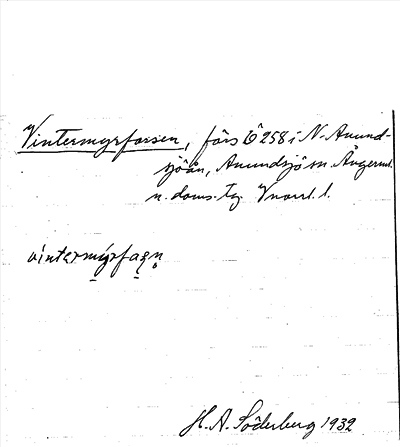 Vintermyrforsen, fors Ö 258 i N. Anund-
sjöån, Anundsjö sn. Ångerml.
n. doms. tg. Vnorrl. l.
vintərmýrfaʂn̥
H. A. Söderberg 1932